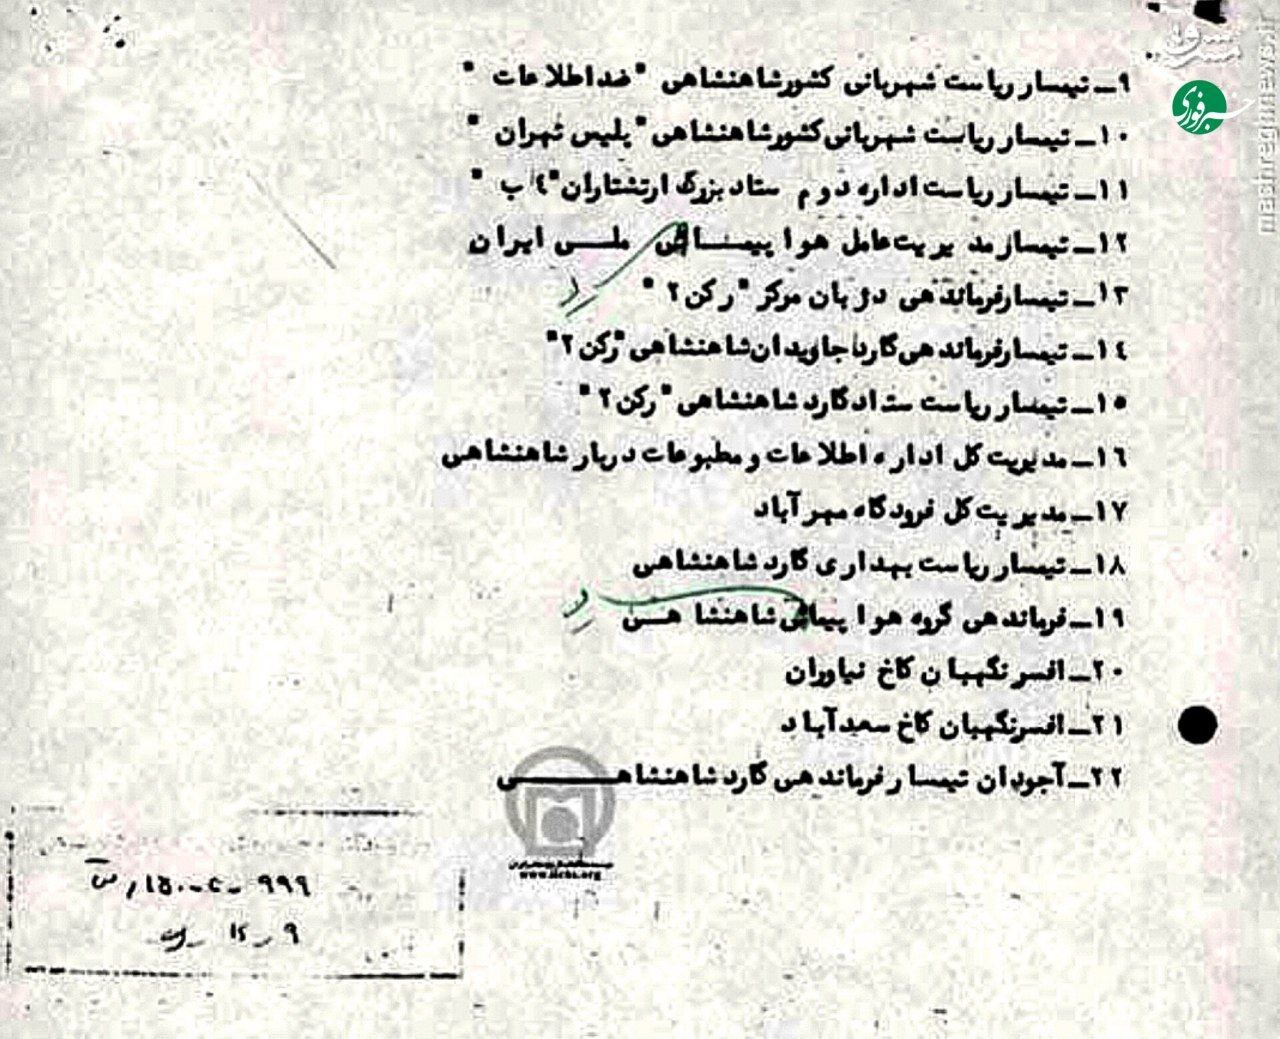 mashreghnews.ir
مشرق
خبرفوری
۹ــ تیمسار ریاست شهربانی کشورشاهنشاهی "ضداطلاعات"
۱۰ــ تیمسار ریاست شهربانی کشورشاهنشاهی "پلیس تهران"
۱۱ــ تیمسار ریاست اداره دوم ستاد بزرگ ارتشتاران "۴ ب"
۱۲ــ تیمسار مدیریت عامل هواپیمــائی ملــی ایران
۱۳ــ تیمسار فرماندهی دژبان مرکز "رکن ۲"
۱۴ــ تیمسار فرماندهی گارد جاویدان شاهنشاهی "رکن ۲"
۱۵ــ تیمسار ریاست ستاد گارد شاهنشاهی "رکن ۲"
۱۶ــ مدیریت کل اداره اطلاعات و مطبوعات دربار شاهنشاهی
۱۷ــ مدیریت کل فرودگاه مهرآباد
۱۸ــ تیمسار ریاست بهداری گارد شاهنشاهی
۱۹ــ فرماندهی گروه هواپیمائی شاهنشاهــی
۲۰ــ افسر نگهبان کاخ نیاوران
۲۱ــ افسر نگهبان کاخ سعدآباد
۲۲ــ آجودان تیمسار فرماندهی گارد شاهنشاهــــی
www.iichs.org